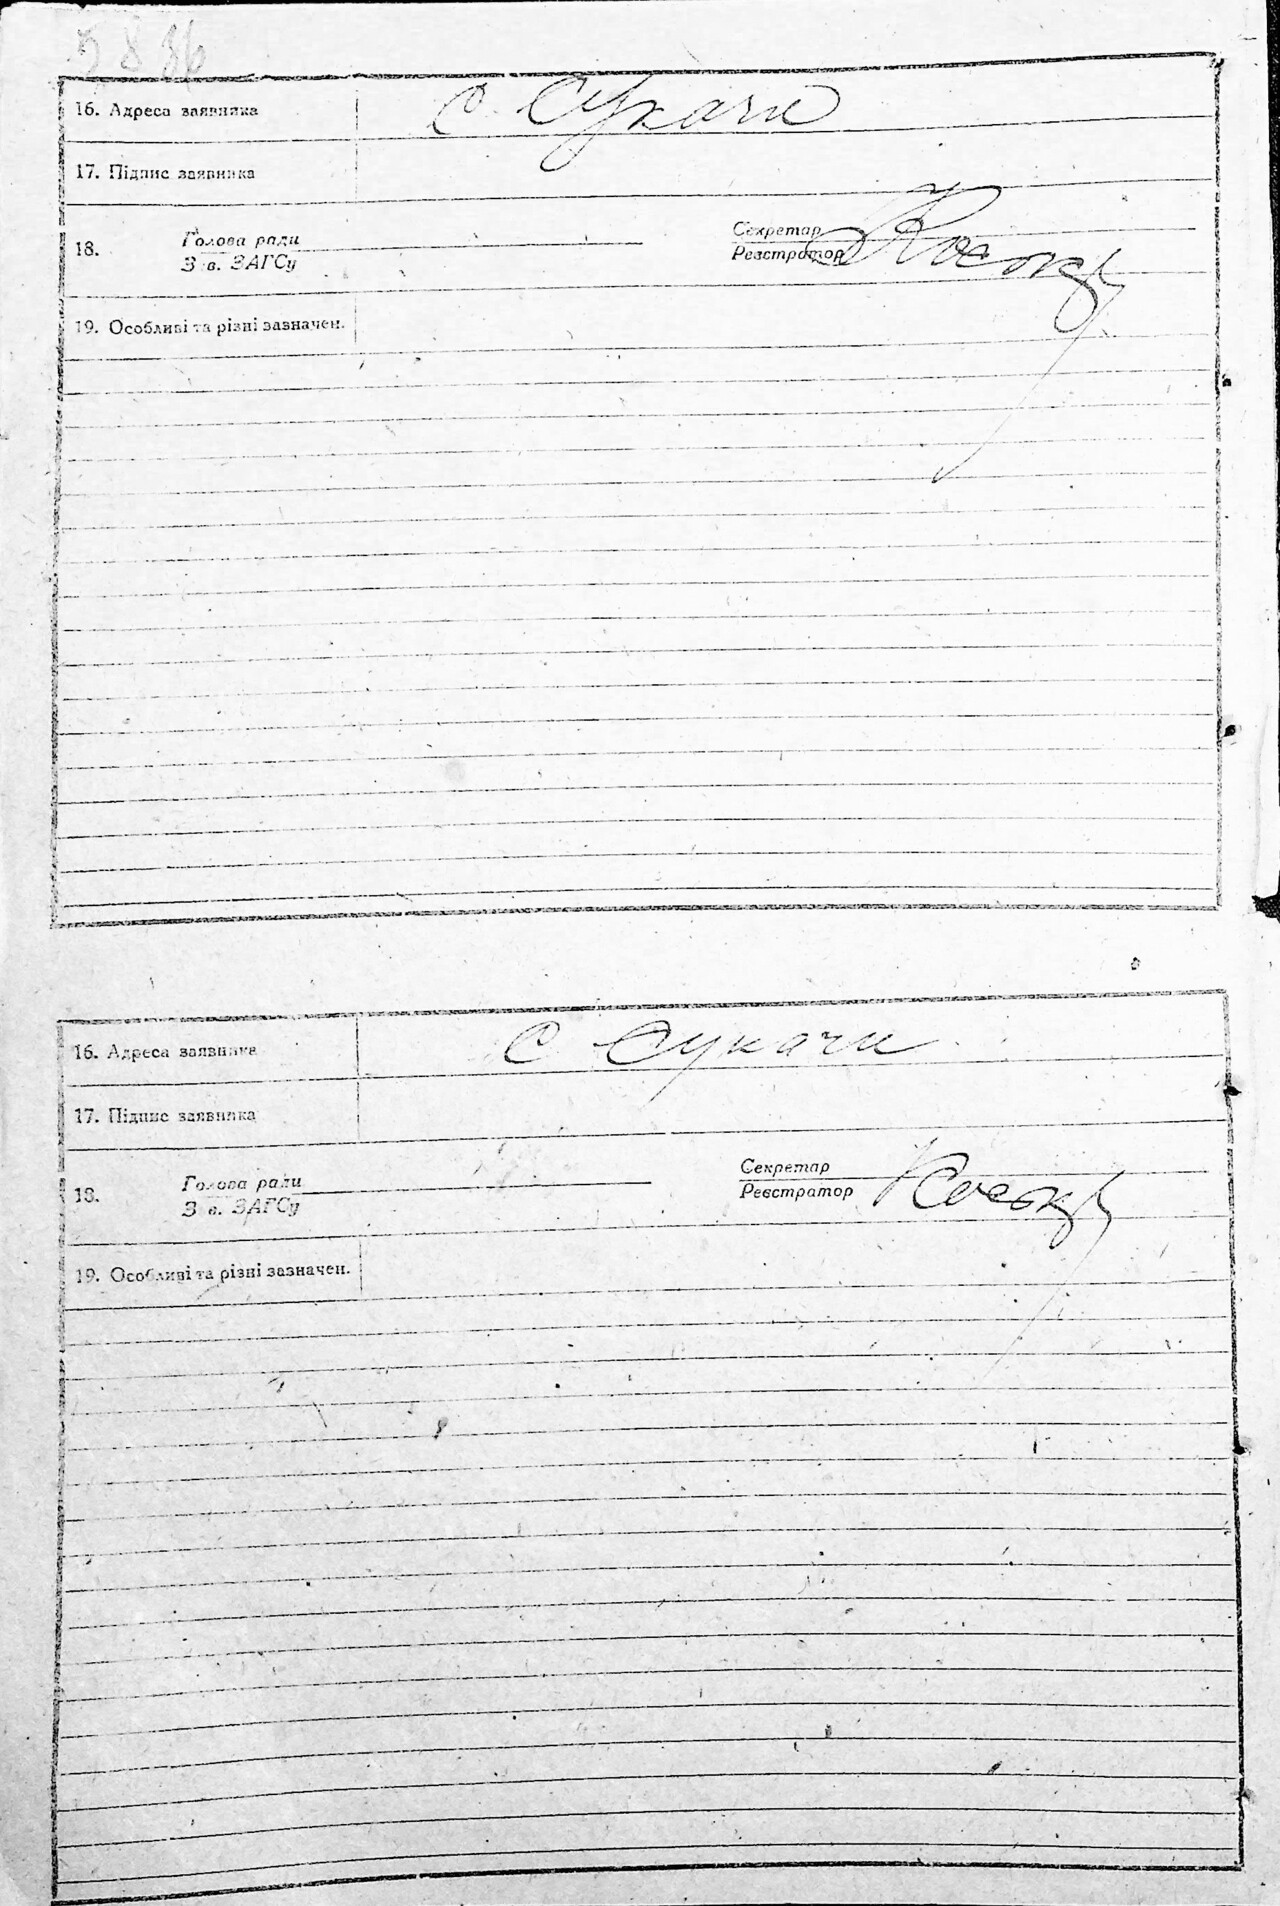 16. Адреса заявника с Сукачи
17. Підпис заявника
18. Голова ради Секретар
З в. ЗАГСу Реєстратор
19. Особливі та різні зазначен.
16. Адреса заявника с Сукачи
17. Підпис заявника
18. Голова ради Секретар
З в. ЗАГСу Реєстратор
19. Особливі та різні зазначен.